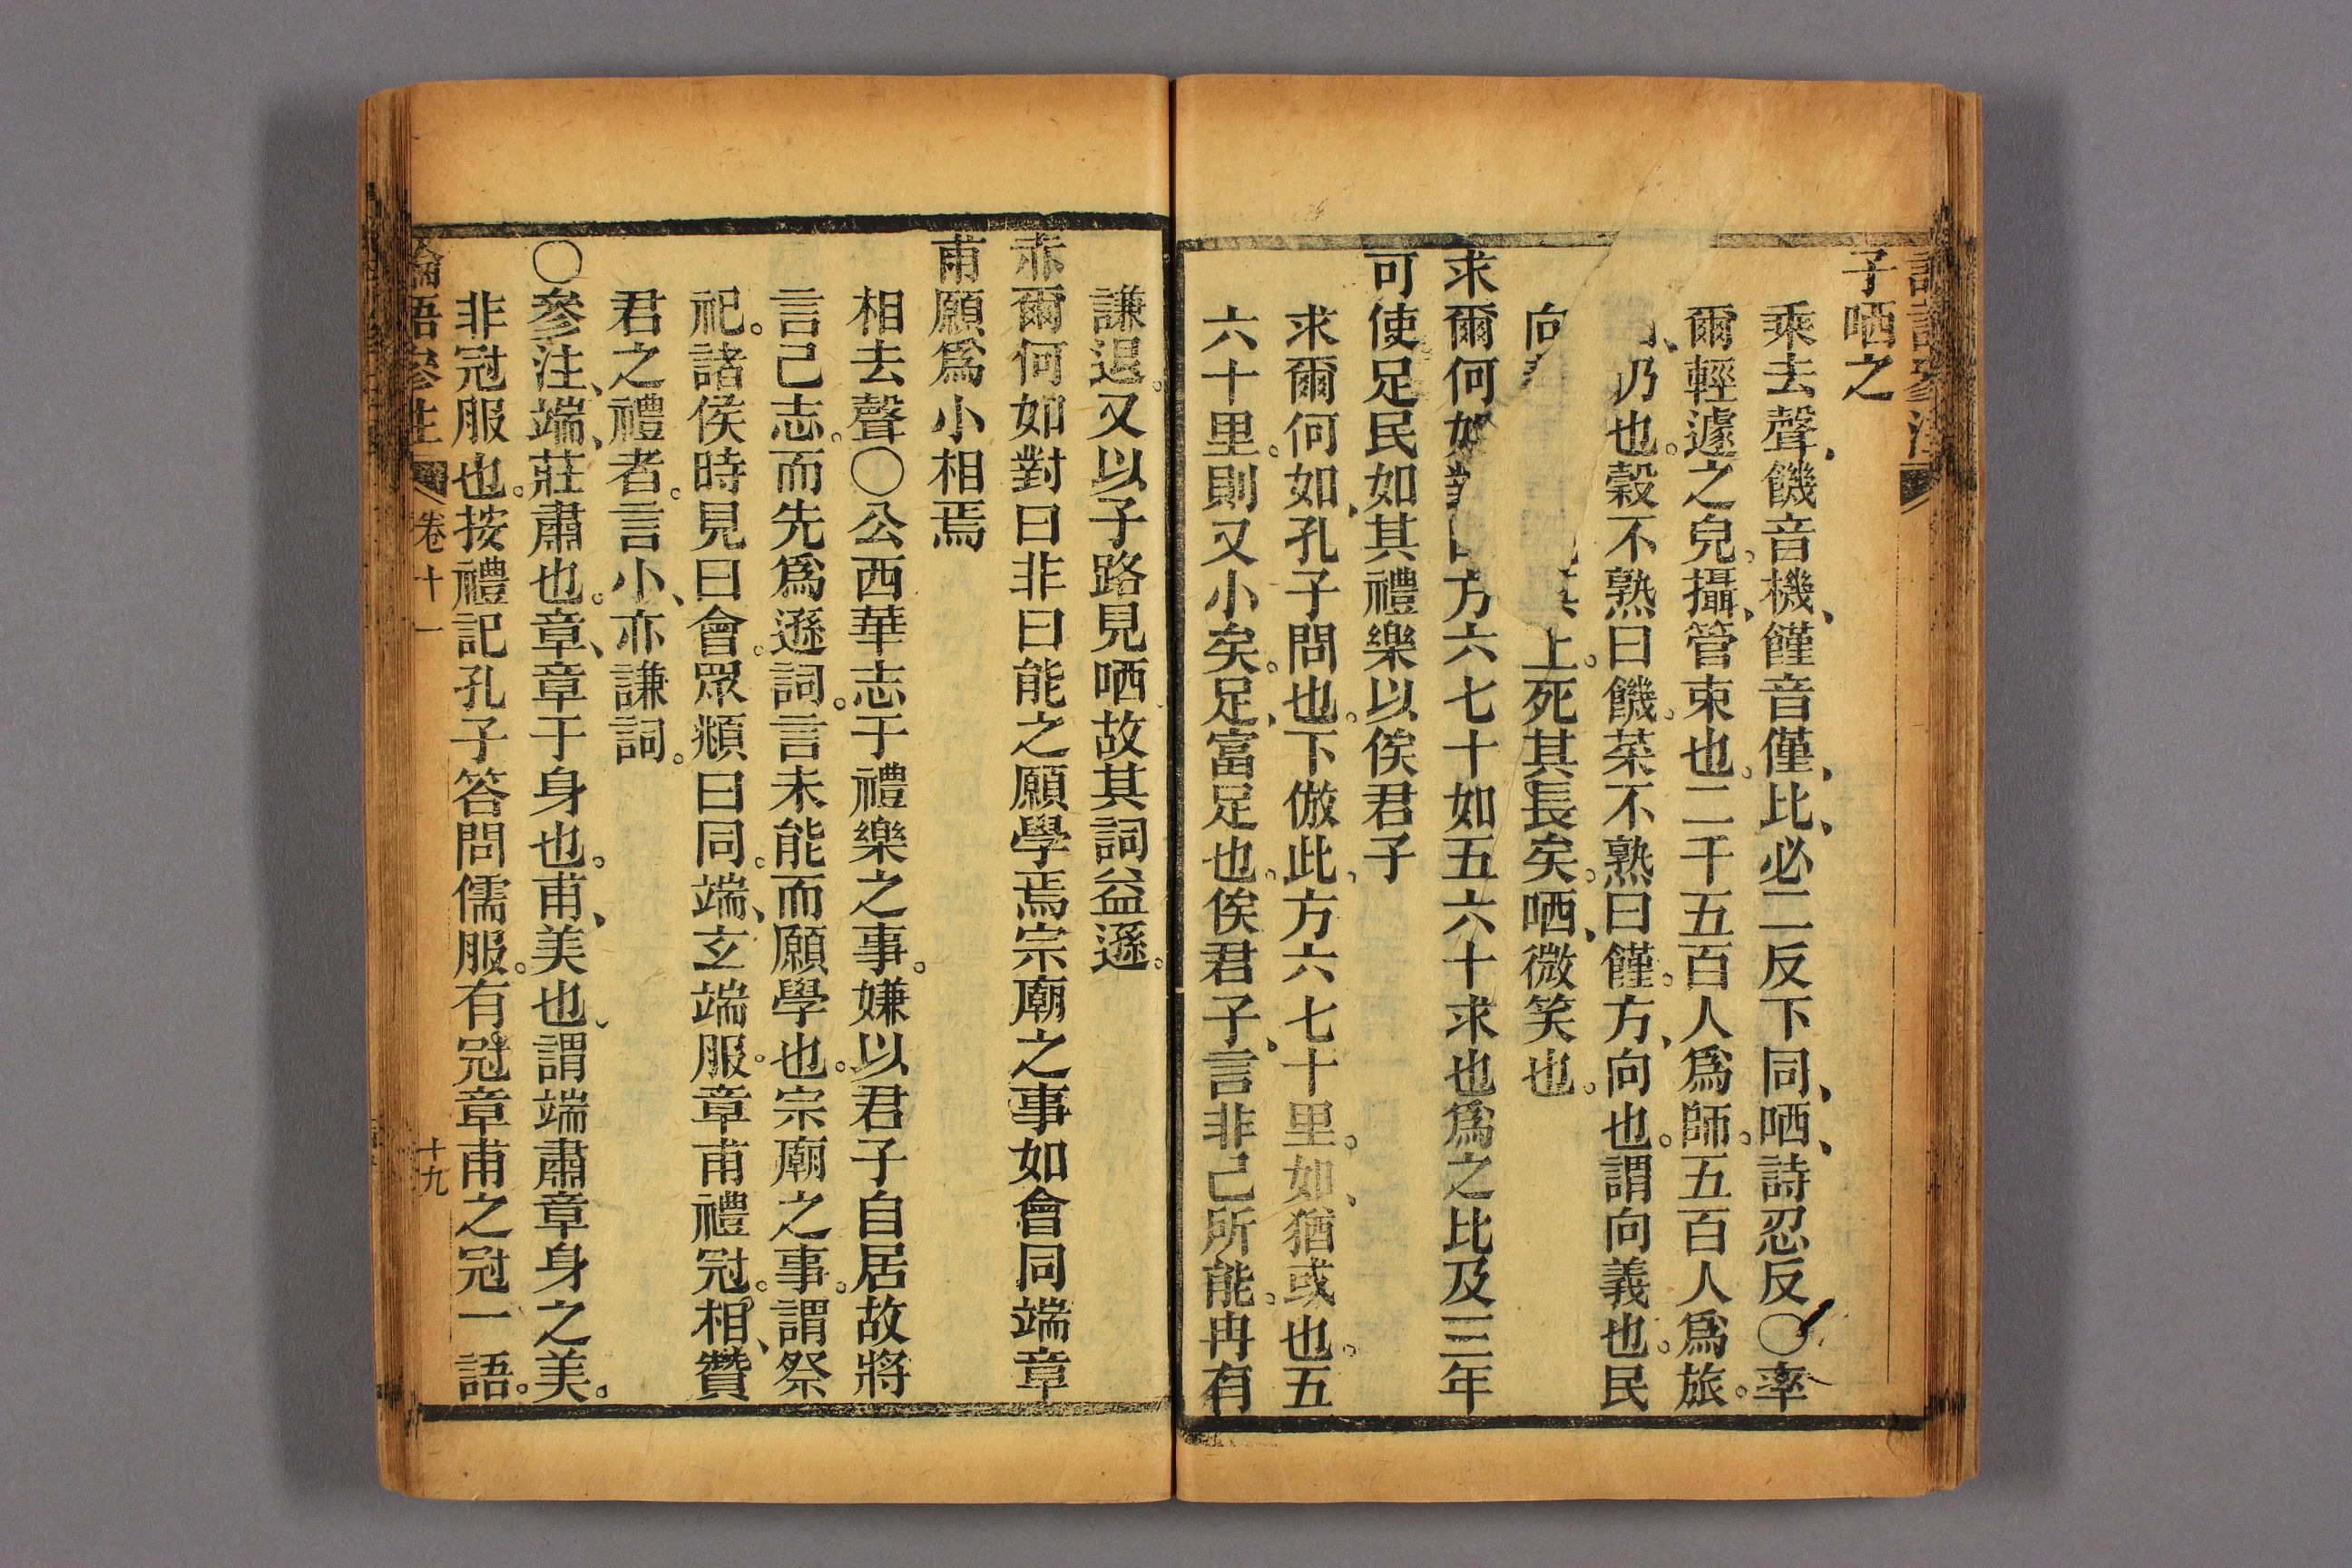 子哂之
乘去聲、饑音機、饉音僅、比、必二反下同、哂、詩忍反○率
爾輕遽之皃。攝、管束也。二千五百人爲師。五百人爲旅。
、仍也。穀不熟曰饑。菜不熟曰饉。方、向也。謂向義也。民
向上。死其長矣。哂、微笑也。
求爾何如方六七十如五六十求也爲之比及三年
可使足民如其禮樂以俟君子
求爾何如、孔子問也。下倣此、方六七十里。如、猶或也。五
六十里。則又小矣。足、富足也。俟君子、言非己所能。冉有
謙退。又以子路見哂故其詞益遜。
赤爾何如對曰非曰能之願學焉宗廟之事如會同端章
甫願爲小相焉
相去聲○公西華志于禮樂之事。嫌以君子自居故將
言己志。而先爲遜詞。言未能而願學也。宗廟之事。謂祭
祀。諸侯時見曰會。眾頫曰同。端、玄端服。章甫禮冠。相、贊
君之禮者。言小、亦謙詞。
○參注、端、莊肅也。章、章于身也。甫、美也、謂端肅章身之美。
非冠服也。按禮記孔子答問儒服。有冠章甫之冠一語。
論語參注 卷十一 十九